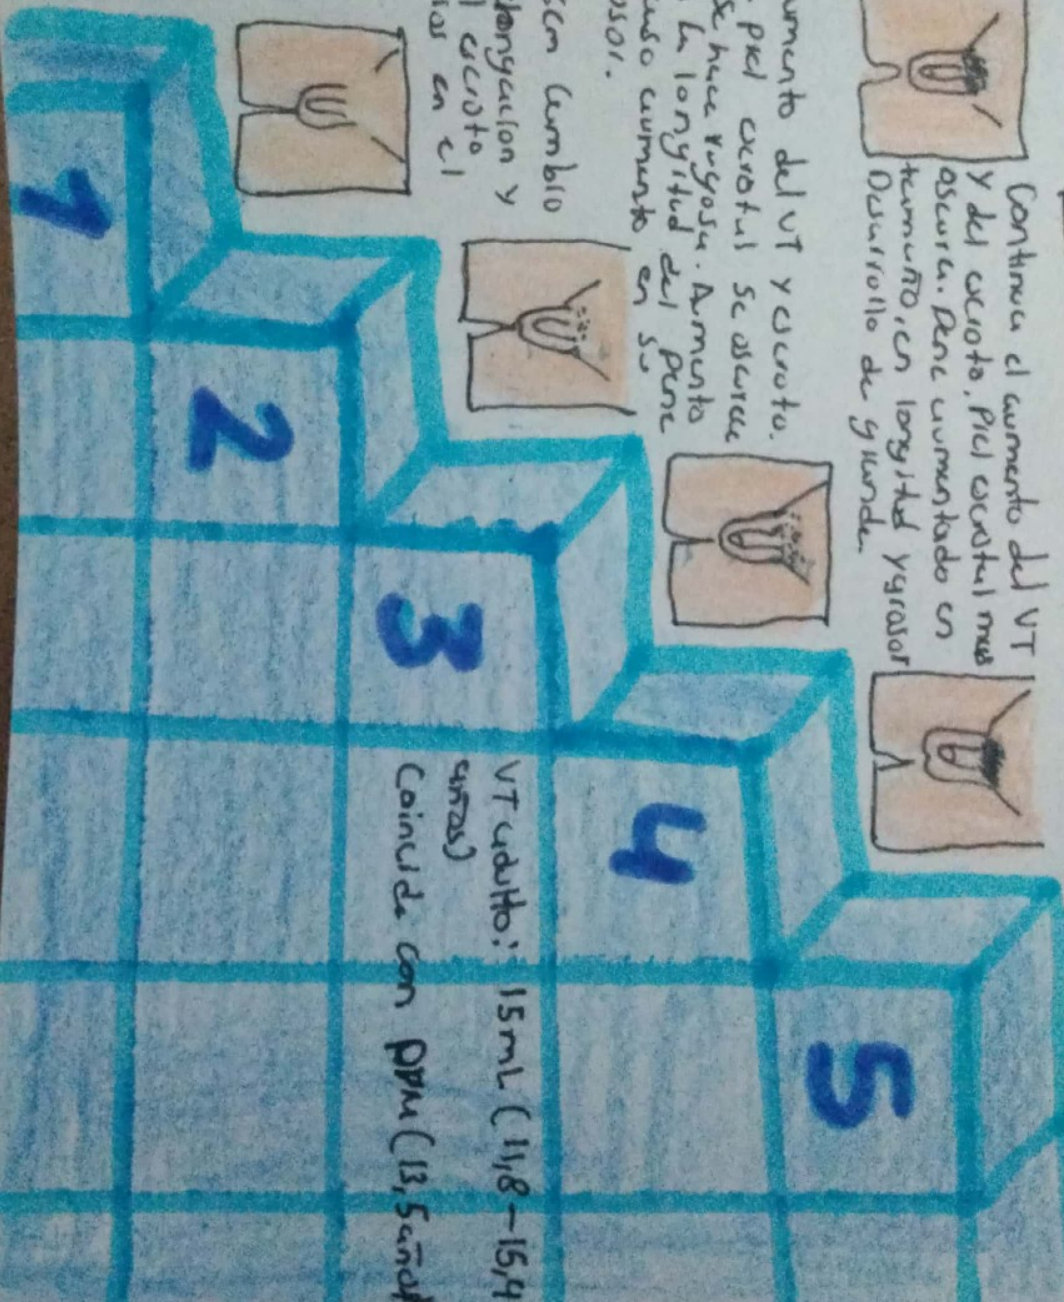 Continua el aumento del VT
y del escroto, Piel escrotal mas
oscura. Pene aumentado en
tamaño, en longitud y grosor
Desarrollo de glande.
del VT y escroto.
piel escrotal se oscurece
se hace rugosa. Aumento
la longitud del pene
aumento en su
cambio
y
escroto
en el
5
4
3
2
1
VT adulto: 15mL (11,8-15,4
años)
Coincide con (13,5 años